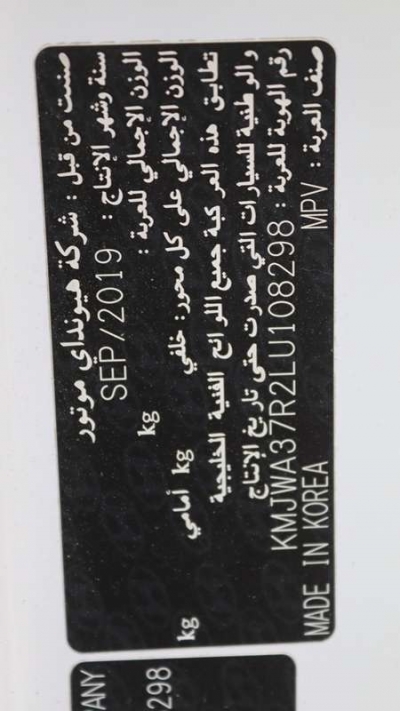 صنعت من قبل : شركة هيونداي موتور
سنة وشهر الإنتاج : SEP/2019
الوزن الإجمالي للعربة : kg
الوزن الإجمالي على كل محور: خلفي kg أمامي kg
تطابق هذه المركبة جميع اللوائح الفنية الخليجية
والوطنية للسيارات التي صدرت حتى تاريخ الإنتاج
رقم الهوية للعربة : KMJWA37R2LU108298
صنف العربة : MPV MADE IN KOREA
298